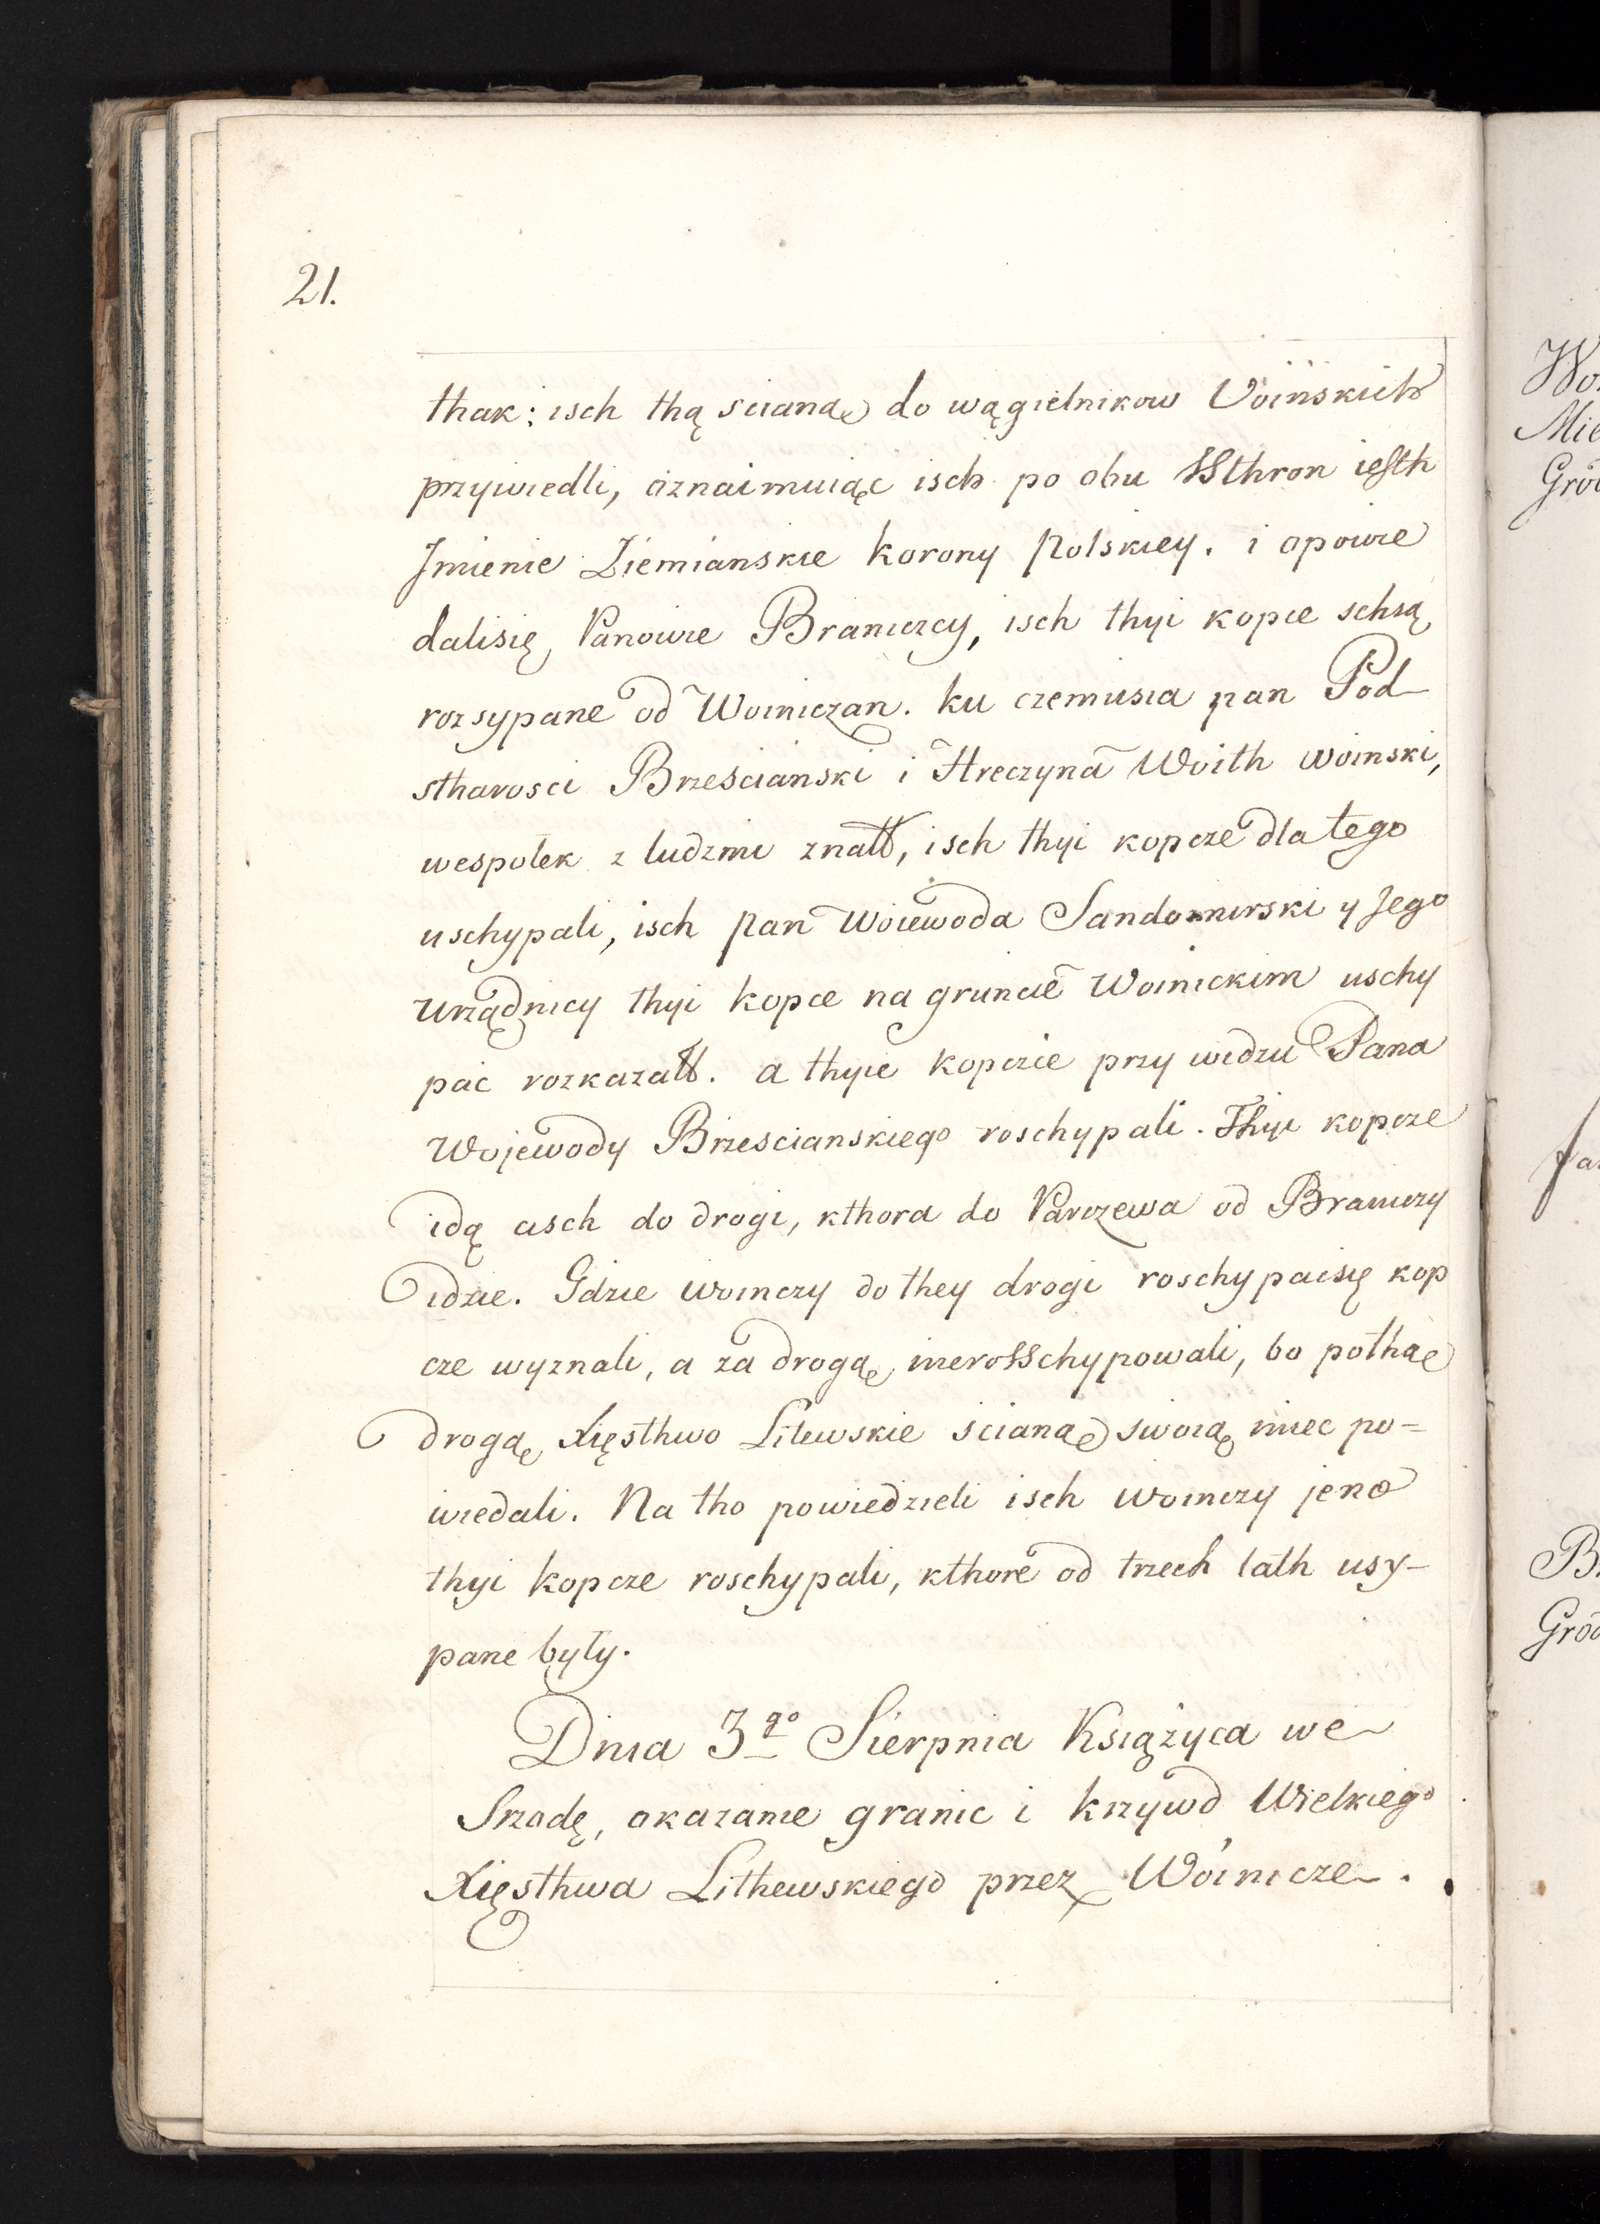 21.
thak; isch thą scianąę do wągielnikow Voinskich
przywiedli, oznaimuiąc isch po obu SSthron iesth
Jmienie Ziemianskie Korony Polskiey. i opowie
dalisię Panowie Branwicy, isch thyi kopce schsą
rozsypane od Woiniczan. Ku czemusia pan Pod
stharosci Brześcianski i Hreczyna Woith woinski,
wespolek z ludzmi znałł, isch thyi kopcze dla tego
uschypali, isch pan Woiewoda Sandomirski y Jego
Urządnicy thyi kopce na gruncie Woinickim uschy
pac rozkazałł. a thyie kopczie przy widzu Pana
Wojewody Brzescianskiego roschypali. Thyi kopcze
idą asch do drogi, kthora do Parczewa od Branwiczy
idzie. Gdzie woinczy do they drogi roschypacsię kop
cze wyznali, a za drogąę nierossschypowali, bo pothąę
drogąę Xięsthwo Litewskie scianąę swoią miec po=
wiedali. Na tho powiedzieli isch woinczy jeno
thyi kopcze roschypali, kthore od trzech lath usy-
pane były.
Dnia 3go Sierpnia Księżyca we
Srzodę, okazanie granic i krzywd Wielkiego
Xięsthwa Lithewskiego przez Woinicze.
Mie